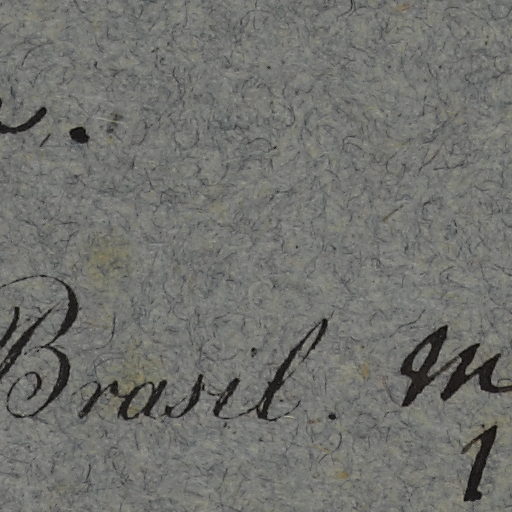 Brasil. m
1